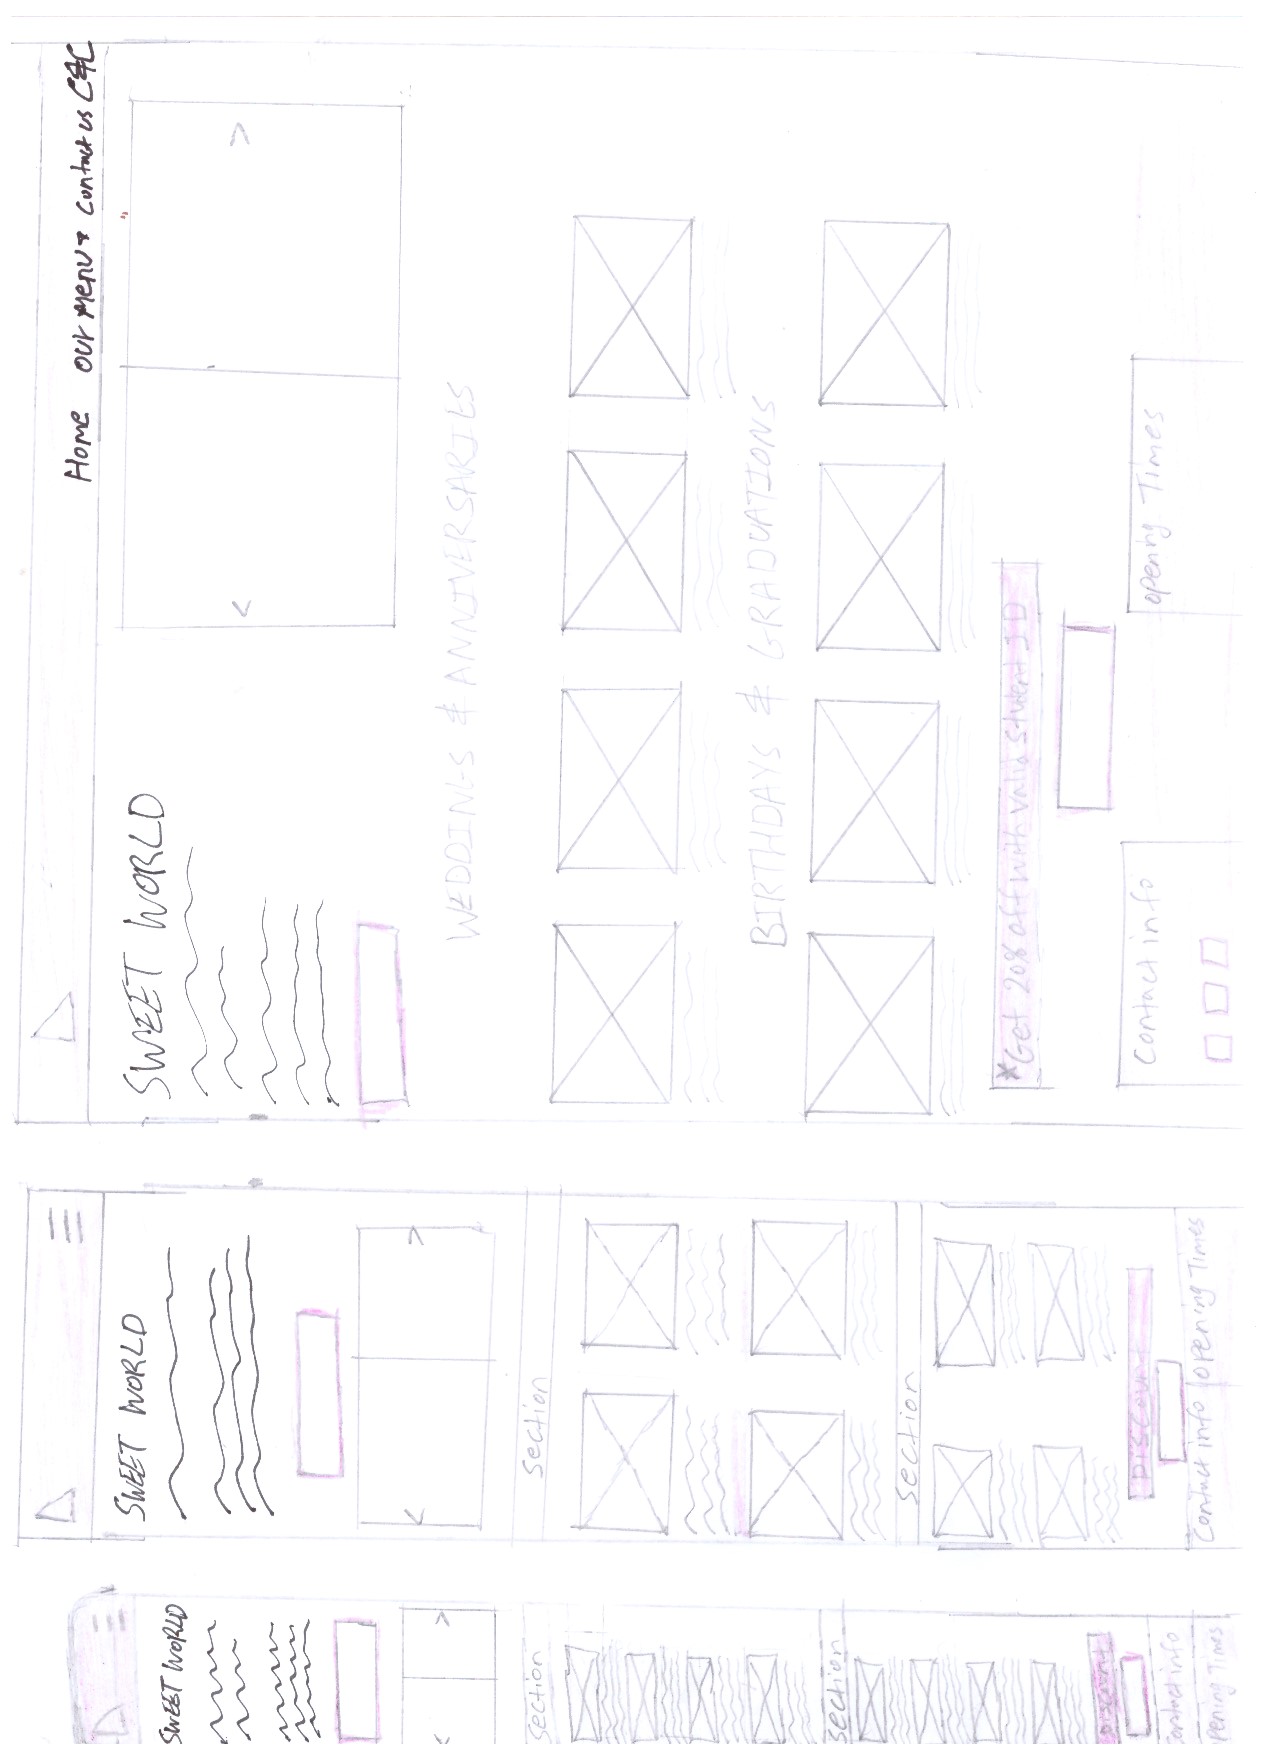 SWEET WORLD
section
section
Discount
contact info
opening Times
SWEET WORLD
section
section
DISCOUNT
Contact info
opening Times
Home our Menu Contact us C&C
SWEET WORLD
WEDDINGS & ANNIVERSARIES
BIRTHDAYS & GRADUATIONS
*Get 20% off with valid student ID
Contact info
opening Times